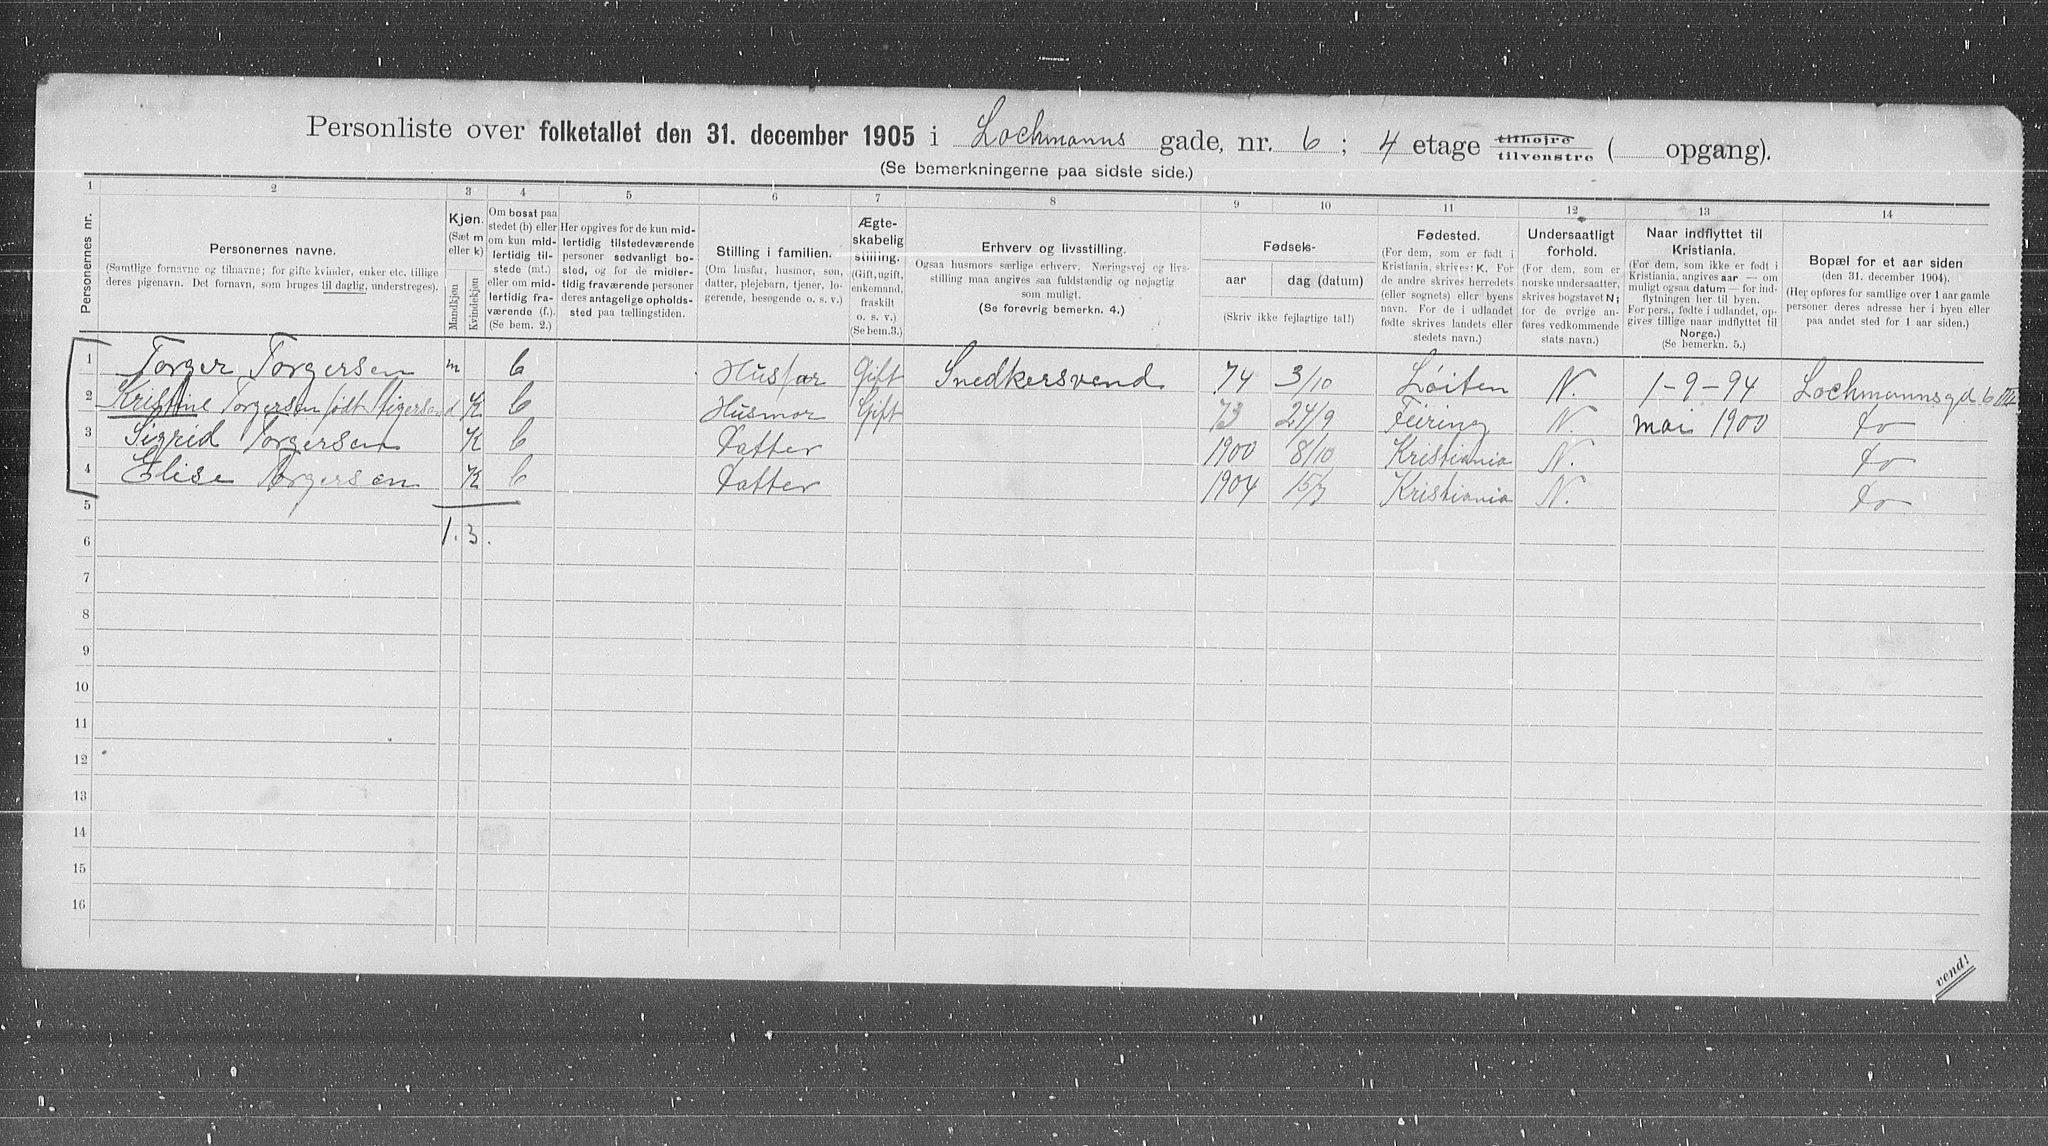 Personliste over folketallet den 31. december 1905 i Lochmanns gade, nr. 6 ; 4 etage tilhøjre tilvenstre ( opgang).
(Se bemerkningerne paa sidste side.)
1 2 3 4 5 6 7 8 9 10 11 12 13 14
Personernes nr.
Personernes navne.
(Samtlige fornavne og tilnavne; for gifte kvinder, enker etc. tillige
deres pigenavn. Det fornavn, som bruges til daglig, understreges).
Kjøn.
(Sæt m
eller k)
Mandkjøn
Kvindekjøn
Om bosat paa
stedet (b) eller
om kun mid-
lertidig til-
stede (mt.)
eller om mid-
lertidig fra-
værende (f.).
(Se bem. 2.)
Her opgives for de kun mid-
lertidig tilstedeværende
personer sedvanligt bo-
sted, og for de midler-
tidig fraværende personer
deres antagelige opholds-
sted paa tællingstiden.
Stilling i familien.
(Om husfar, husmor, søn,
datter, plejebarn, tjener, lo-
gerende, besøgende o. s. v.)
Ægte-
skabelig
stilling.
(Gift, ugift,
enkemand,
fraskilt
o. s. v.)
(Se bem.3.)
Erhverv og livsstilling.
Ogsaa husmors særlige erhverv. Næringsvej og livs-
stilling maa angives saa fuldstændig og nøjagtig
som muligt.
(Se forøvrig bemerkn. 4.)
Fødsels-
aar dag (datum)
(Skriv ikke fejlagtige tal!)
Fødested.
(For dem, som er født i
Kristiania, skrives: K. For
de andre skrives herredets
(eller sognets) eller byens
navn. For de i udlandet
fødte skrives landets eller
stedets navn.)
Undersaatligt
forhold.
(For dem, som er
norske undersaatter,
skrives bogstavet N;
for de øvrige an-
føres vedkommende
stats navn.)
Naar indflyttet til
Kristiania.
(For dem, som ikke er født i
Kristiania, angives aar — om
muligt ogsaa datum — for ind-
flytningen her til byen.
For pers., fødte i udlandet, op-
gives tillige naar indflyttet til
Norge.)
(Se bemerkn. 5.)
Bopæl for et aar siden
(den 31. december 1904).
(Her opføres for samtlige over 1 aar gamle
personer deres adresse her i byen eller
paa andet sted for 1 aar siden.)
1 Torger Torgersen m b Husfar Gift Snedkersvend 74 3/10 Løiten N. 1-9-94 Lochmannsgd 6 III
2 Kristine Torgersen født K b Husmor Gift 73 24/9 Feiring N. mai 1900 do
3 Sigrid Torgersen K b Datter 1900 8/10 Kristiania N. do
4 Elise Torgersen K b Datter 1904 Kristiania N. do
5
6 1. 3.
7
8
9
10
11
12
13
14
15
16
vend!